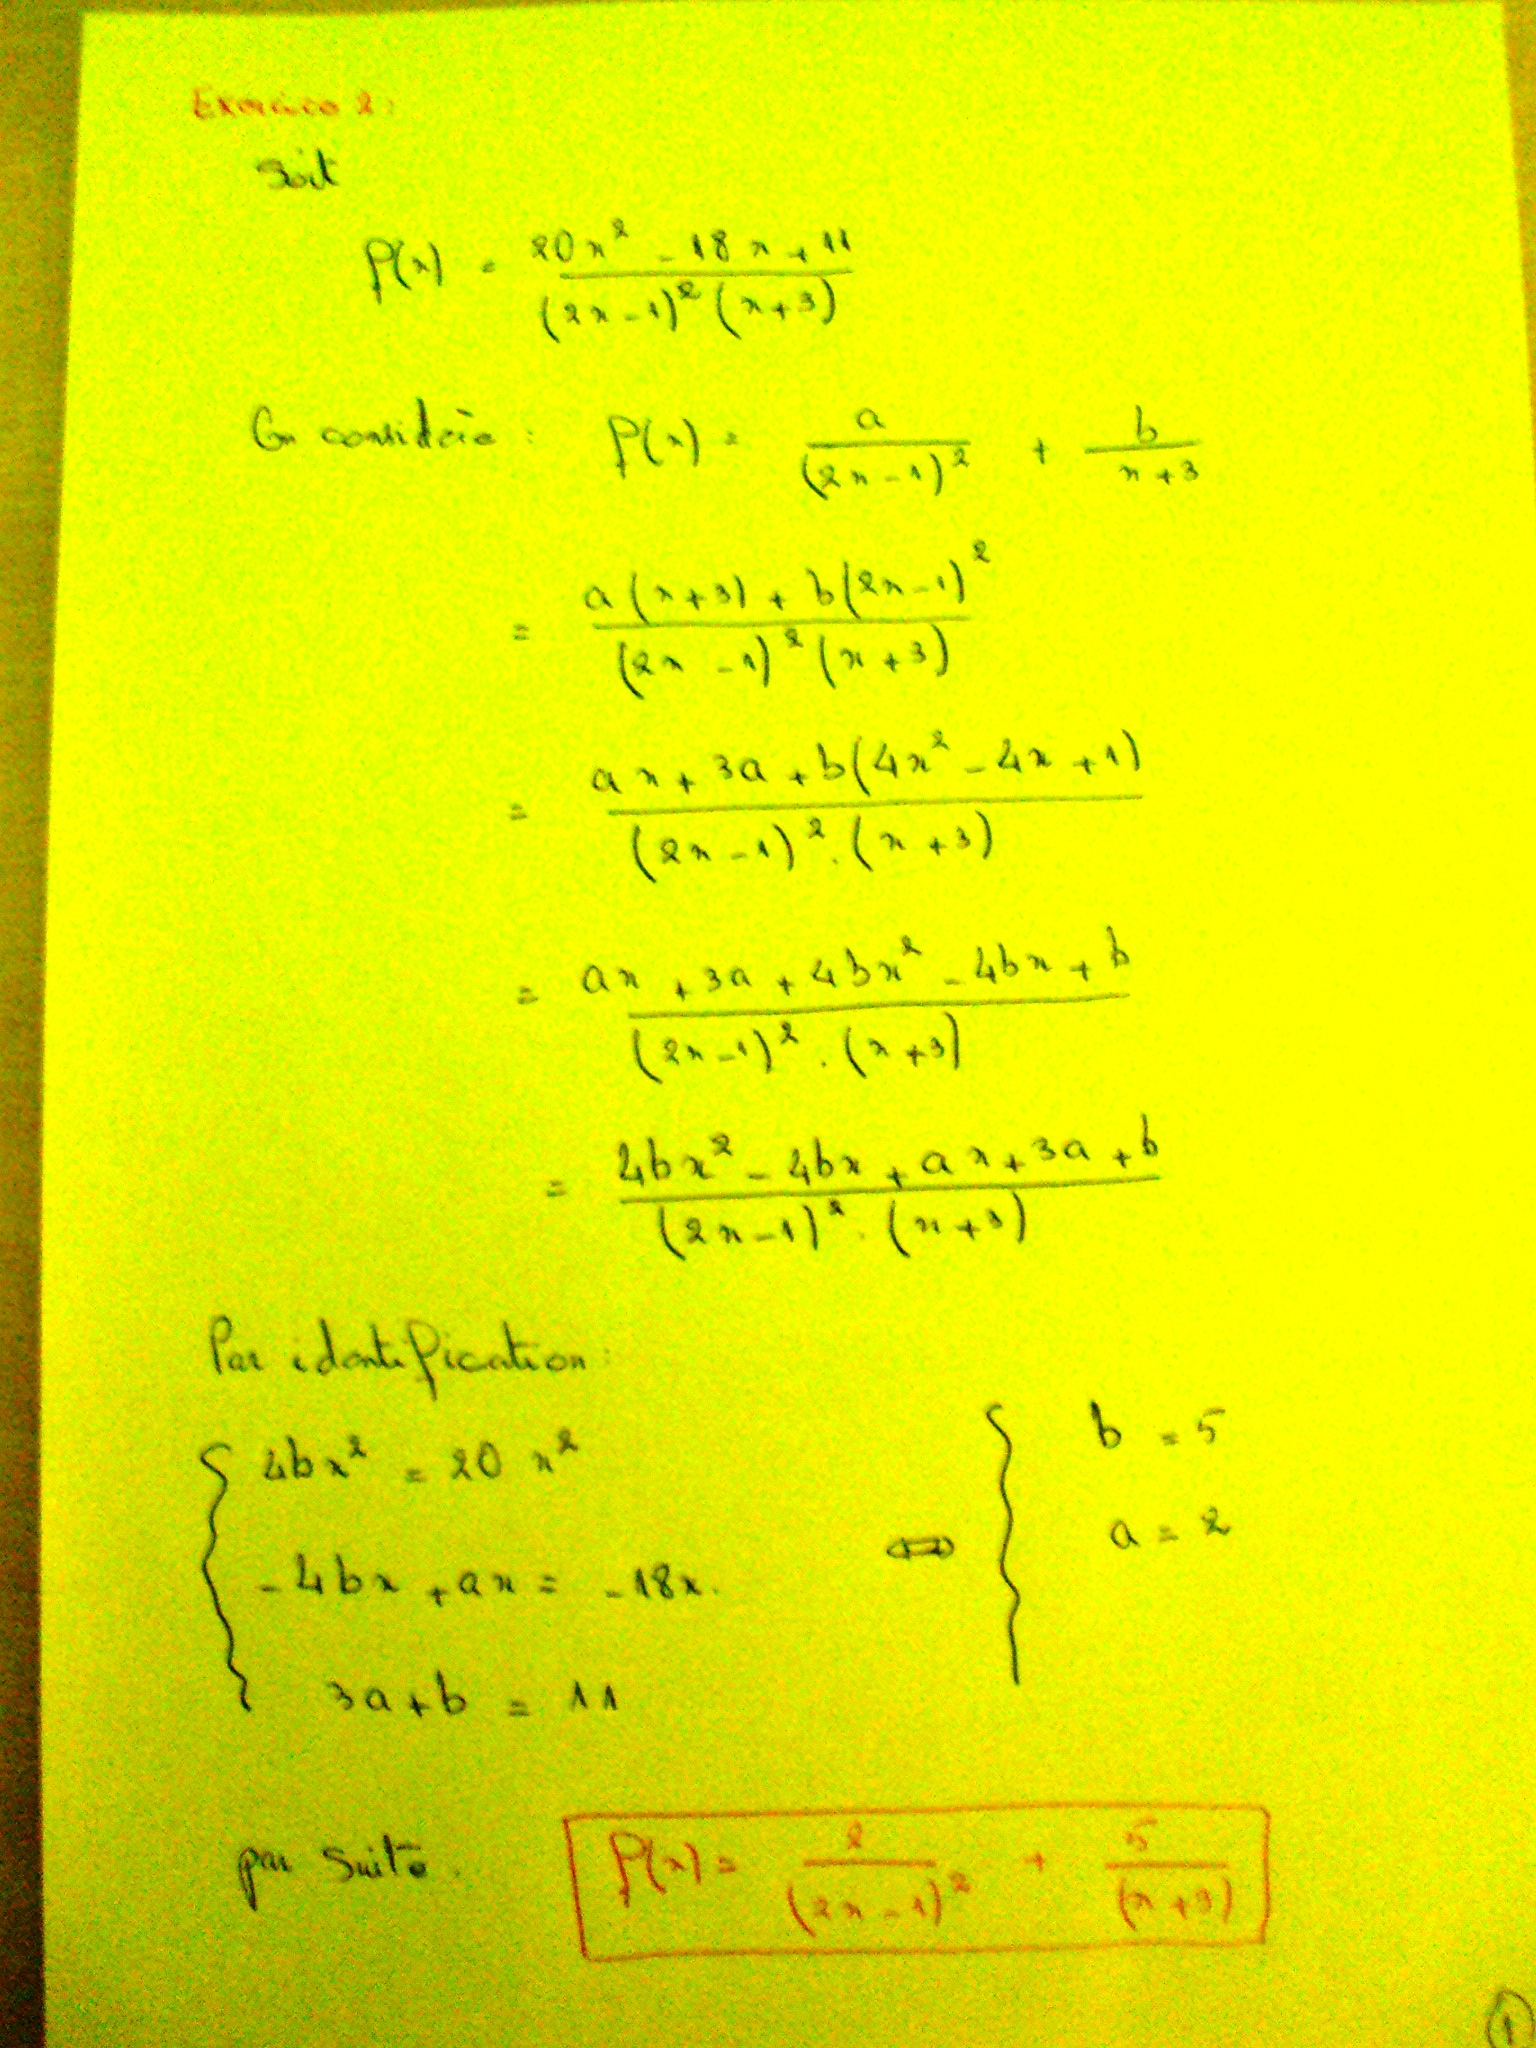 Exercice 2:
Soit
f(x) = 20x² - 18x + 11 / (2x-1)² (x+3)
On considère : f(x) = a / (2x-1)² + b / x+3
= a(x+3) + b(2x-1)² / (2x-1)² (x+3)
= ax + 3a + b(4x² - 4x + 1) / (2x-1)² . (x+3)
= ax + 3a + 4bx² - 4bx + b / (2x-1)² . (x+3)
= 4bx² - 4bx + ax + 3a + b / (2x-1)² . (x+3)
Par identification:
{ 4bx² = 20x²
-4bx + ax = -18x.
3a + b = 11
⇔ { b = 5
a = 2
par suite.
f(x) = 2 / (2x-1)² + 5 / (x+3)
1